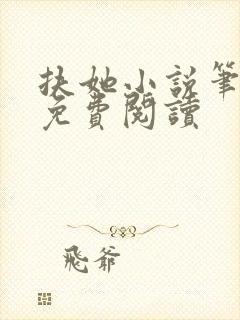 扶她小說筆
免費閱讀
飛爺